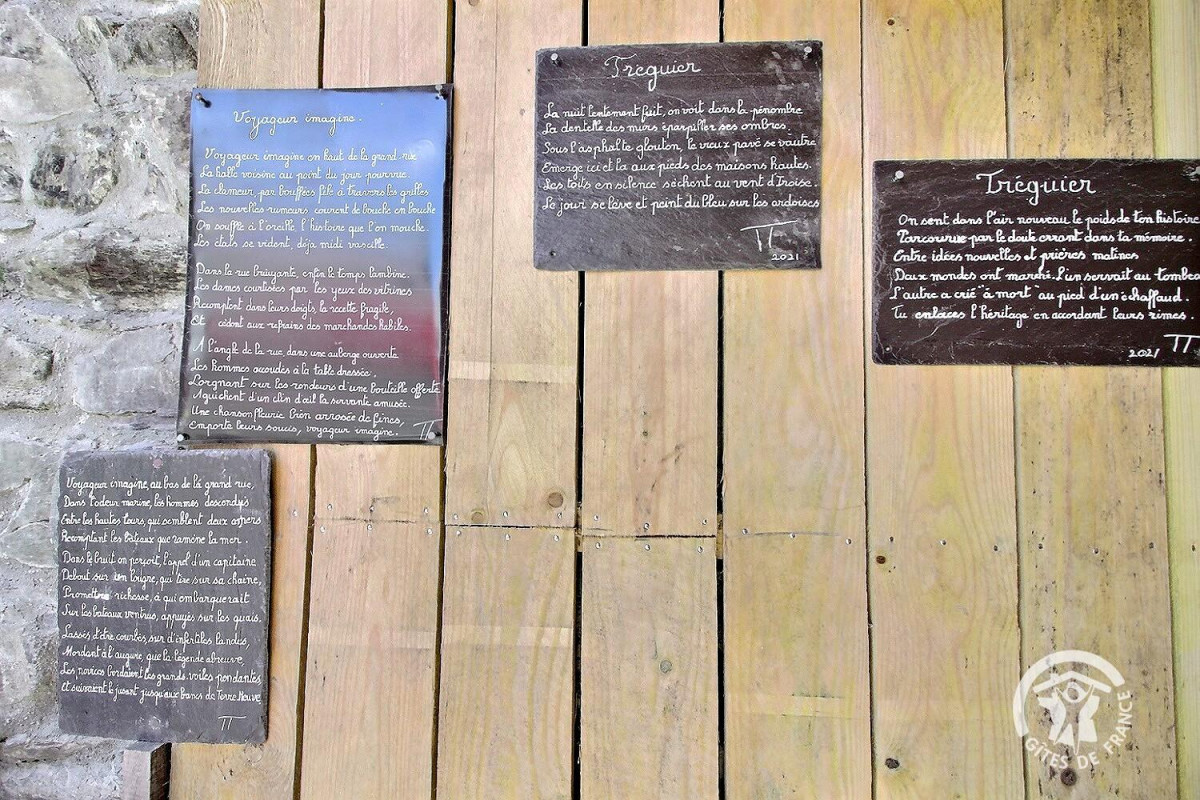 Voyageur imagine.
Voyageur imagine en haut de la grand-rue
La halle voisine au point du jour pourvue.
La clameur, par bouffées file à travers les grilles
Les nouvelles rumeurs courent de bouche en bouche
On souffle à l'oreille, l'histoire que l'on mouche.
Les étals se vident, déjà midi vacille.
Dans la rue bruyante, enfin le temps lambine.
Les dames courtisées par les yeux des vitrines
Recomptent dans leurs doigts, la recette fragile,
Et cèdent aux refrains des marchandes habiles.
A l'angle de la rue, dans une auberge ouverte
Les hommes accoudés à la table dressée.
Lorgnant sur les rondeurs d'une bouteille offerte
Aguichent d'un clin d'œil la servante amusée.
Une chanson fleurie bien arrosée de fines,
Emporte leurs soucis, voyageur imagine.
TT
Voyageur imagine, au bas de la grand rue,
Dans l'odeur marine, les hommes descendus
Entre les hautes tours, qui semblent deux espers
Recomptant les bateaux que ramène la mer.
Dans le bruit on perçoit, l'appel d'un capitaine
Debout sur son lougre, qui tire sur sa chaîne,
Promettre richesse, à qui embarquerait
Sur les bateaux ventrus, appuyés sur les quais.
Lassés d'être courbés, sur d'infertiles landes,
Mordant à l'augure, que la légende abreuve,
Les novices bordaient les grands voiles pendantes
Et suivaient le jusant jusqu'aux bancs de Terre Neuve.
TT
Tréguier
La nuit lentement fuit, on voit dans la pénombre
La dentelle des murs éparpiller ses ombres.
Sous l'asphalte glouton, le vieux pavé se vautre
Emerge ici et là aux pieds des maisons hautes.
Les toits en silence sèchent au vent d'Iroise.
Le jour se lève et peint du bleu sur les ardoises
TT
2021
Tréguier
On sent dans l'air nouveau le poids de ton histoire
Parcourue par le doute errant dans ta mémoire.
Entre idées nouvelles et prières matines
Deux mondes ont marché. l'un servait au tombea
L'autre a crié "à mort" au pied d'un échaffaud.
Tu enlaces l'héritage en accordant leurs rimes.
2021 TT
GÎTES DE FRANCE